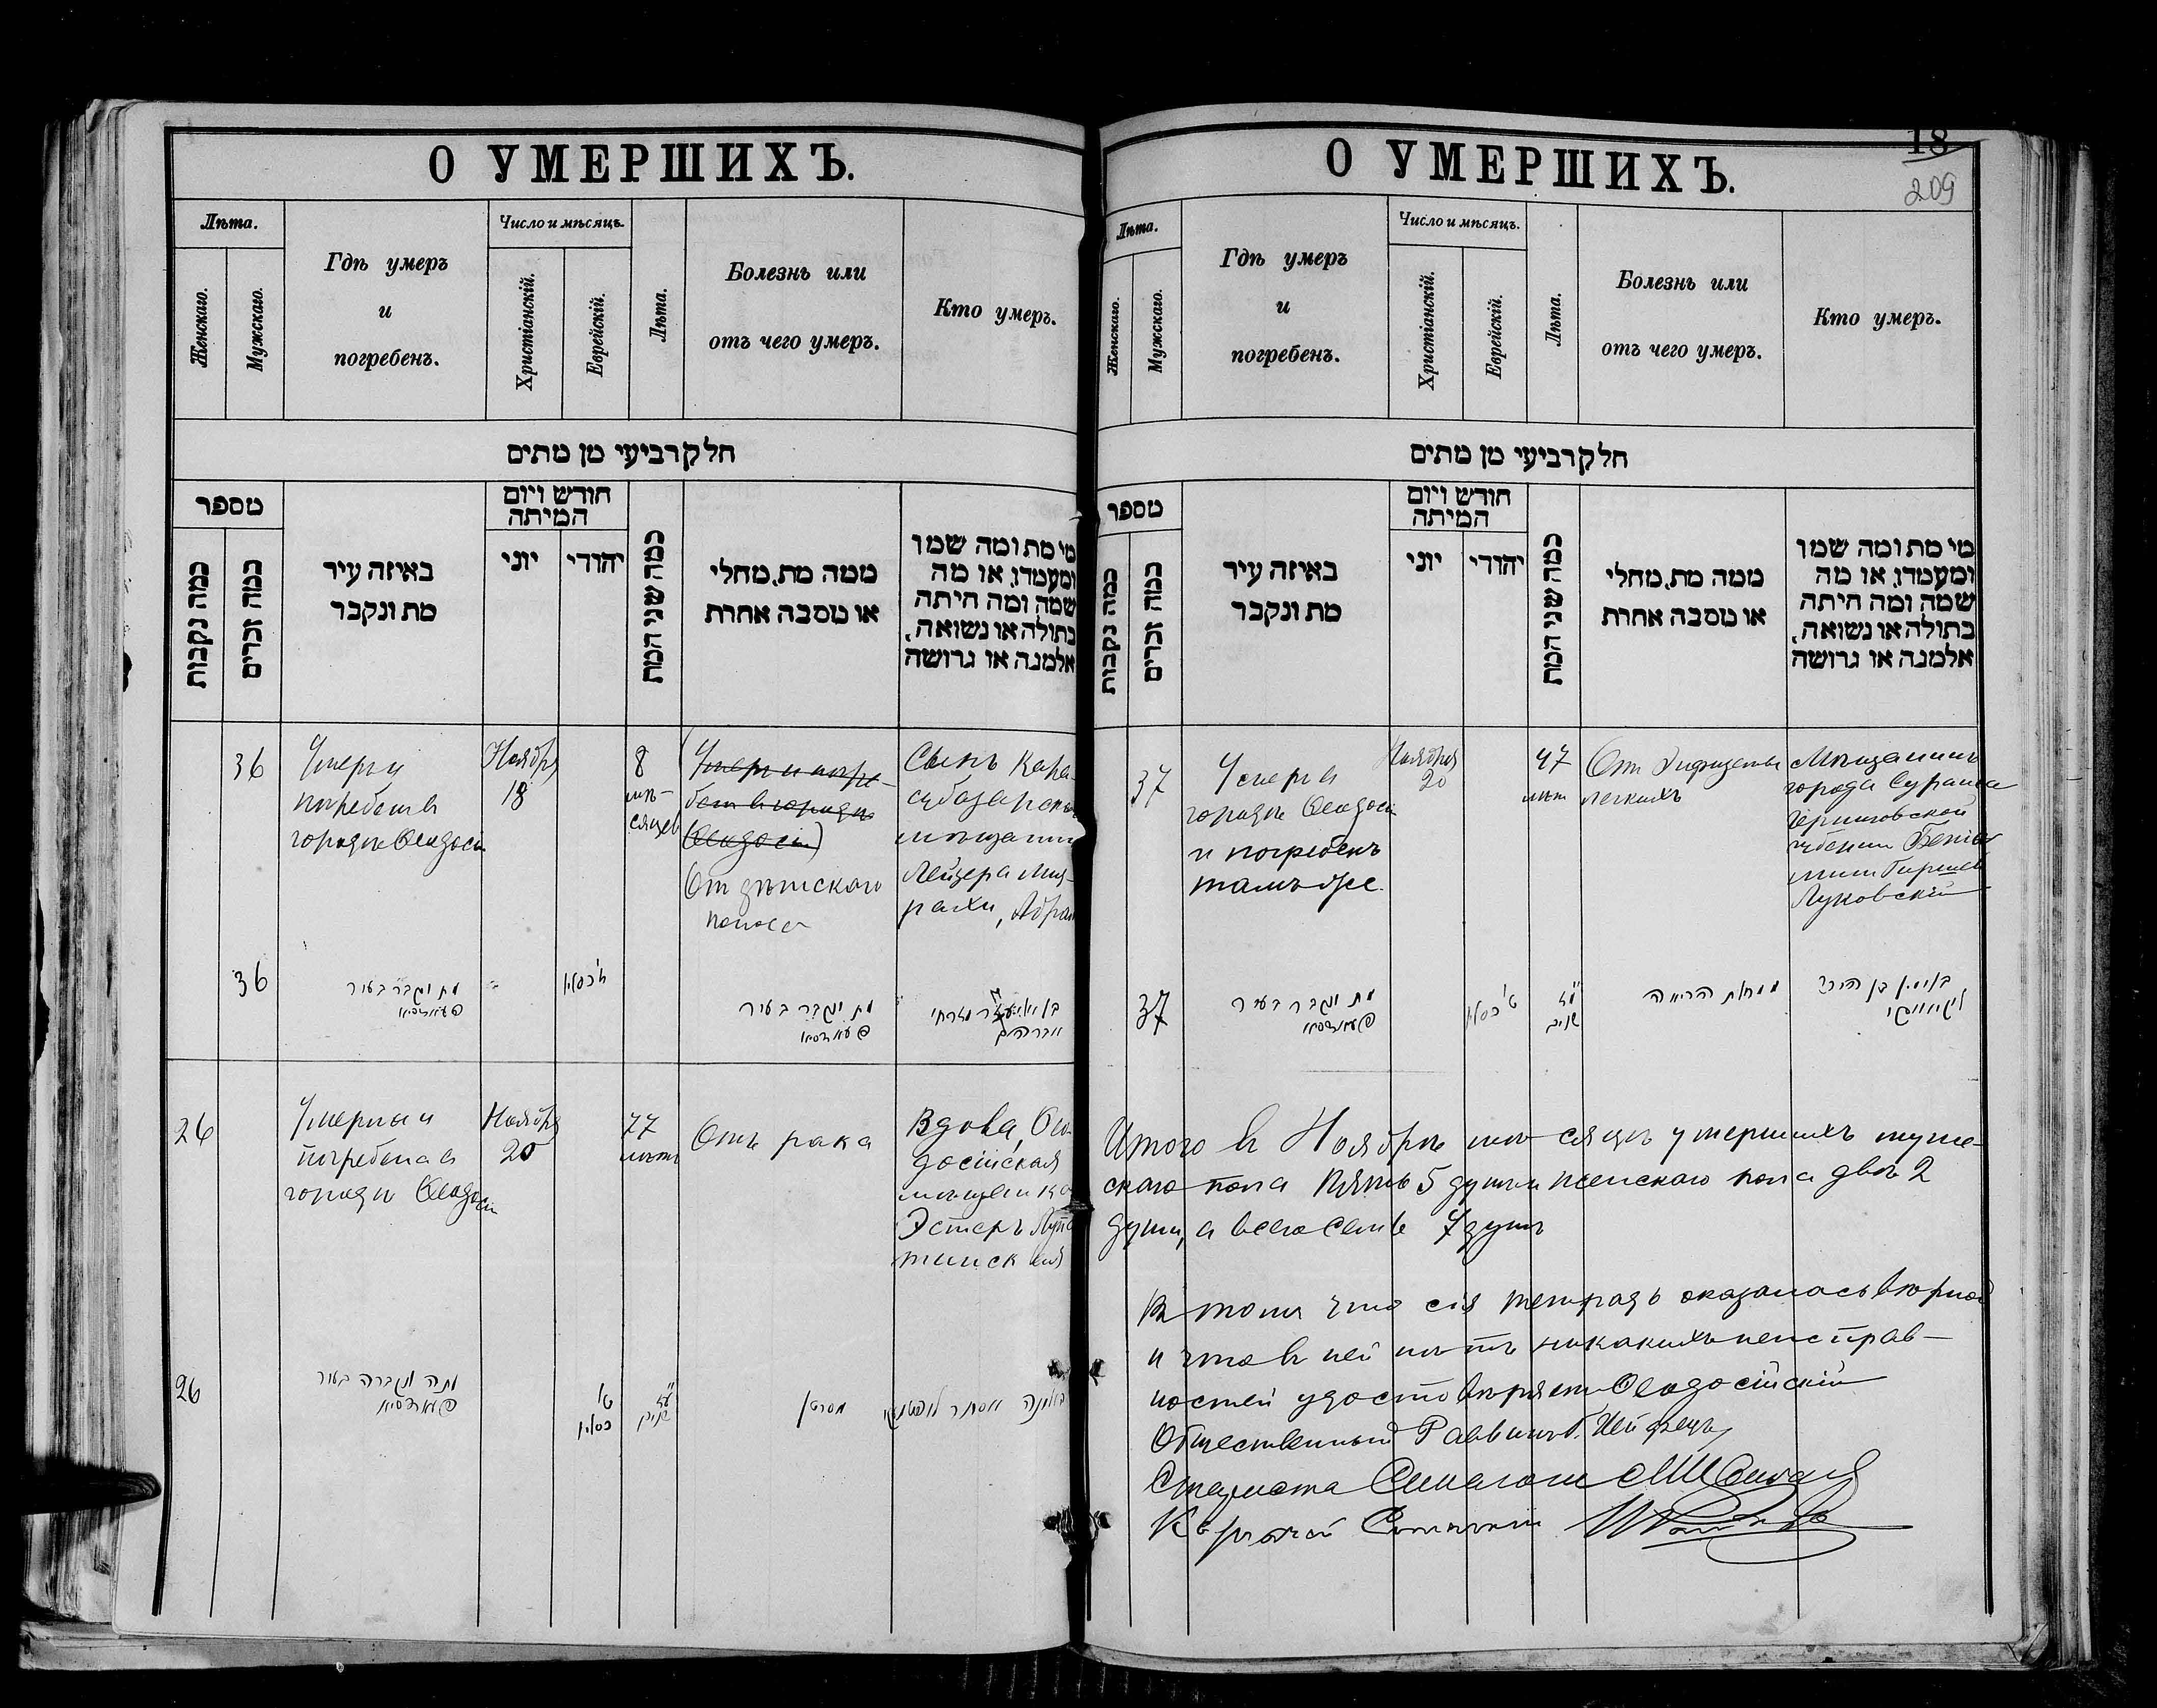 О УМЕРШИХЪ.
Лѣта.
Женскаго.
Мужскаго.
Гдѣ умеръ
и
погребенъ.
Число и мѣсяцъ.
Христіанскій.
Еврейскій.
Лѣта.
Болезнь или
отъ чего умеръ.
Кто умеръ.
חלק רביעי מן מתים
מספר
כמה נקבות
כמה זכרים
באיזה עיר
מת ונקבר
חודש ויום
המיתה
יוני
יהודי
כמה שני המת
ממה מת, מחלי
או מסבה אחרת
מי מת ומה שמו
ומעמדו, או מה
שמה ומה היתה
בתולה או נשואה,
אלמנה או גרושה
36
Умеръ и
погребенъ въ
городѣ Ѳеодосіи
Ноября
18
8
мѣ-
сяцев
(Умеръ и погре-
бенъ въ городѣ
Ѳеодосіи)
От дѣтскаго
поноса
Сынъ Кара-
субазарскаго
мѣщанина
Лейзера Миз-
рахи, Абрам
36
מת ונקבר בעיר
פעאדסיא
כסליו
מת ונקבר בעיר
פעאדסיא
מזרחי
אברהם
26
Умерла и
погребена в
городѣ Ѳеодосіи
Ноября
20
77
лѣтъ
Отъ рака
Вдова, Ѳео-
досійская
мѣщанка
Эстеръ
26
מתה ונקברה בעיר
פעאדסיא
ט'
כסליו
ע"ז
שנים
מסרטן
אלמנה אסתר
О УМЕРШИХЪ.
18
209
Лѣта.
Женскаго.
Мужскаго.
Гдѣ умеръ
и
погребенъ.
Число и мѣсяцъ.
Христіанскій.
Еврейскій.
Лѣта.
Болезнь или
отъ чего умеръ.
Кто умеръ.
חלק רביעי מן מתים
מספר
כמה נקבות
כמה זכרים
באיזה עיר
מת ונקבר
חודש ויום
המיתה
יוני
יהודי
כמה שני המת
ממה מת, מחלי
או מסבה אחרת
מי מת ומה שמו
ומעמדו, או מה
שמה ומה היתה
בתולה או נשואה,
אלמנה או גרושה
37
Умеръ в
городѣ Ѳеодосіи
и погребенъ
тамъ же.
Ноября
20
47
лѣт
От Эмфиземы
легкихъ
Мѣщанинъ
города Суража
Черниговской
губерніи Бенья-
минъ Гиршев
Луковскій
37
מת ונקבר בעיר
פעאדסיא
ט' כסליו
שנים
ממחלת הריאה
בנימין בן הירש
Итого въ Ноябрѣ мѣсяцѣ умершихъ муже-
скаго пола пять 5 душъ и женскаго пола двѣ 2
души, а всего семь 7 душъ
В томъ что сія тетрадь оказалась вѣрной
и что въ ней нѣтъ никакихъ неисправ-
ностей удостовѣряемъ Ѳеодосійскій
Общественный Раввинъ
Староста Синагоги
Синагоги